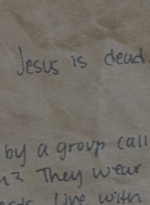 Jesus is dead.
by a group call
? They wear
live with